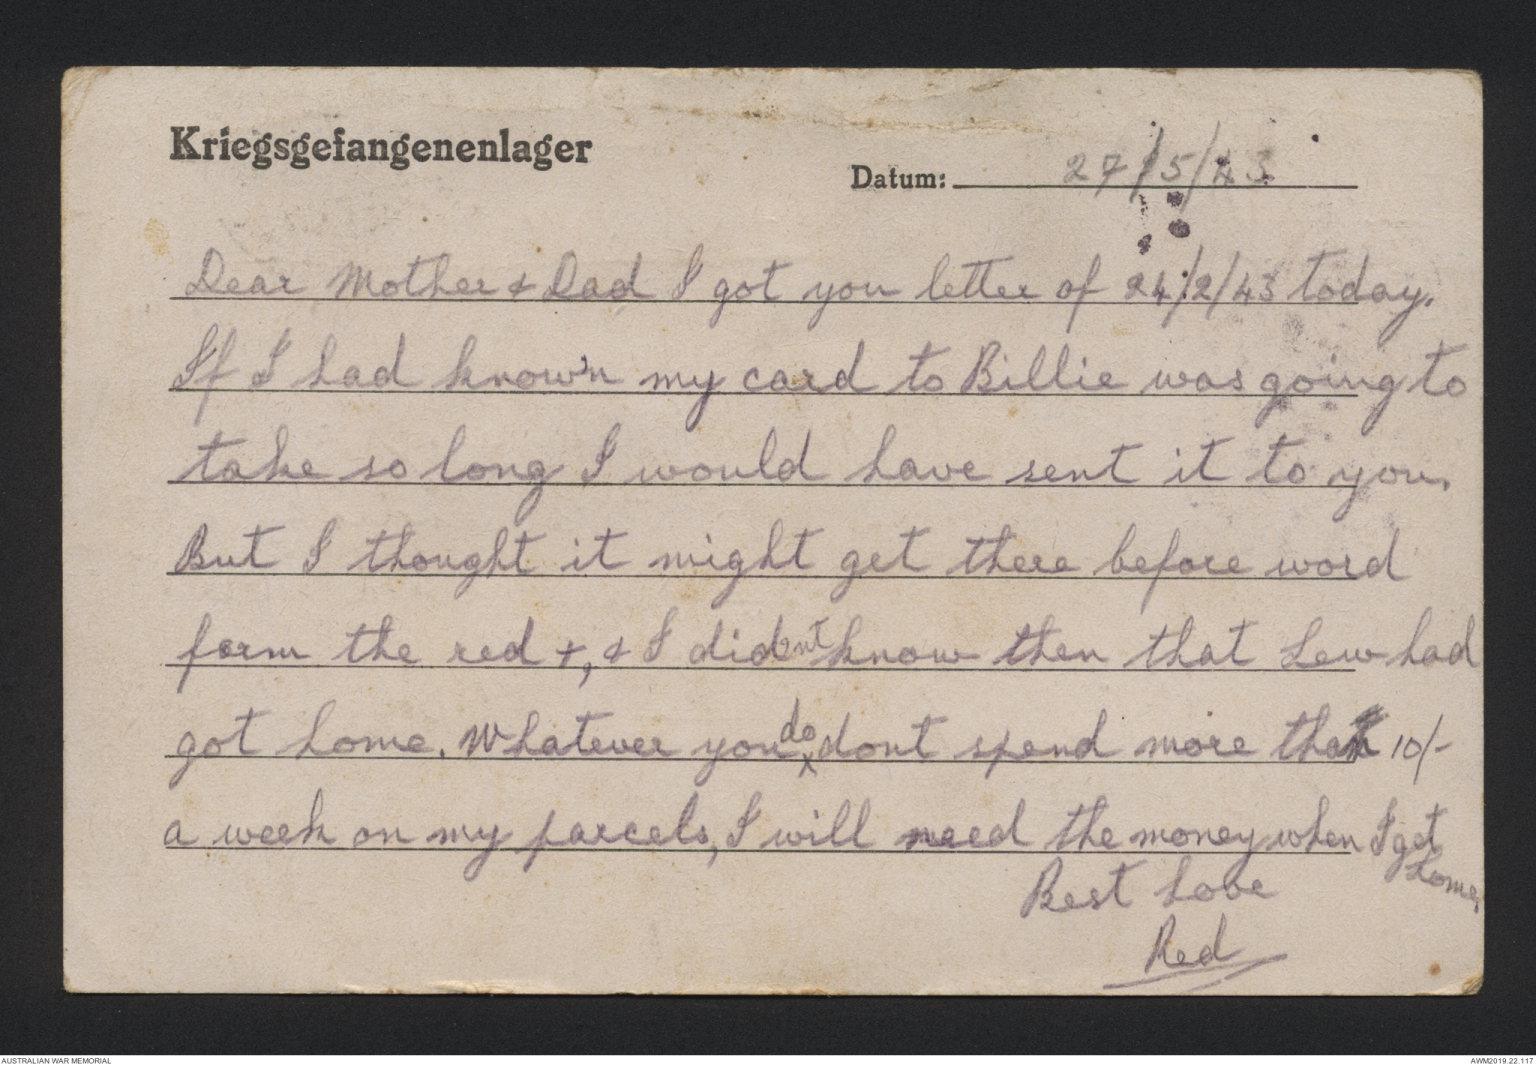 Kriegsgefangenenlager
Datum: 27/5/43
Dear Mother & Dad I got you letter of 24/2/43 today.
If I had know'n my card to Billie was going to
take so long I would have sent it to you.
But I thought it might get there before word
form the red +, & I dident know then that Lew had
got home. Whatever you do dont spend more than 10/-
a week on my parcels, I will need the money when I get
home.
Best Love
Red
AUSTRALIAN WAR MEMORIAL
AWM2019.22.117